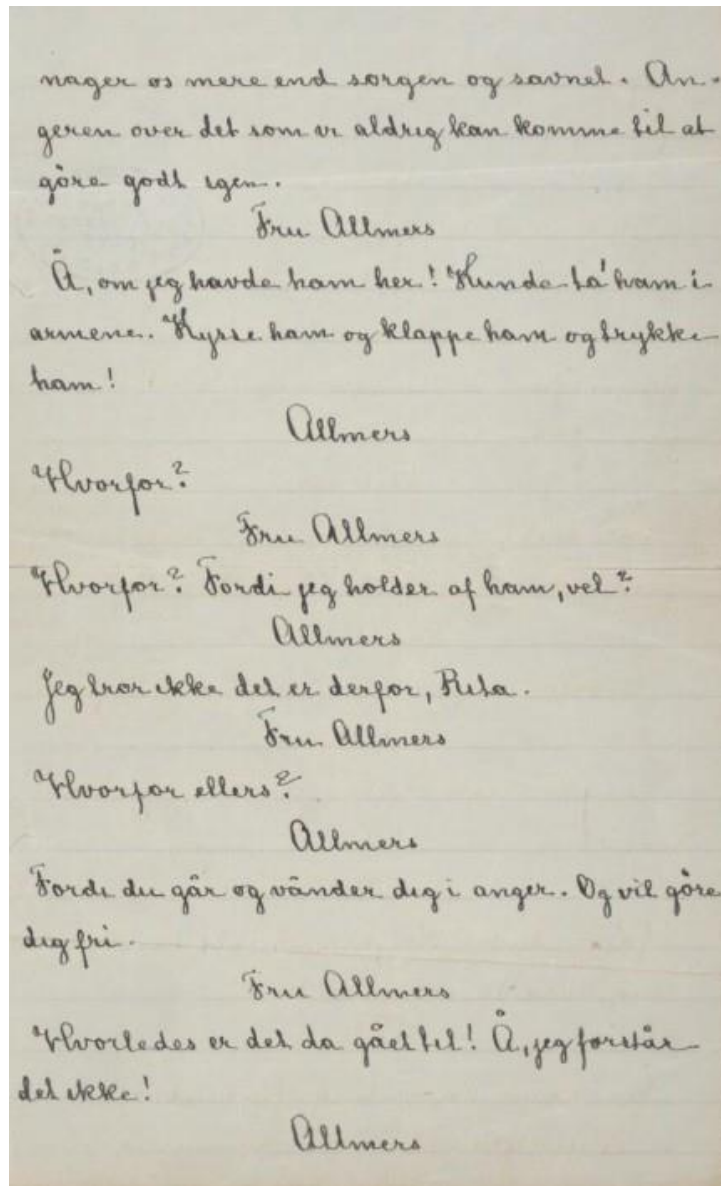 nager os mere end sorgen og savnet. An-
geren over det som vi aldrig kan komme til at
göre godt igen.
Fru Allmers
Å, om jeg havde ham her! Kunde ta' ham i
armene. Kysse ham og klappe ham og trykke
ham!
Allmers
Hvorfor?
Fru Allmers
Hvorfor? Fordi jeg holder af ham, vel?
Allmers
Jeg tror ikke det er derfor, Rita.
Fru Allmers
Hvorfor ellers?
Allmers
Fordi du går og vånder dig i anger. Og vil göre
dig fri.
Fru Allmers
Hvorledes er det da gået til! Å, jeg forstår
det ikke!
Allmers